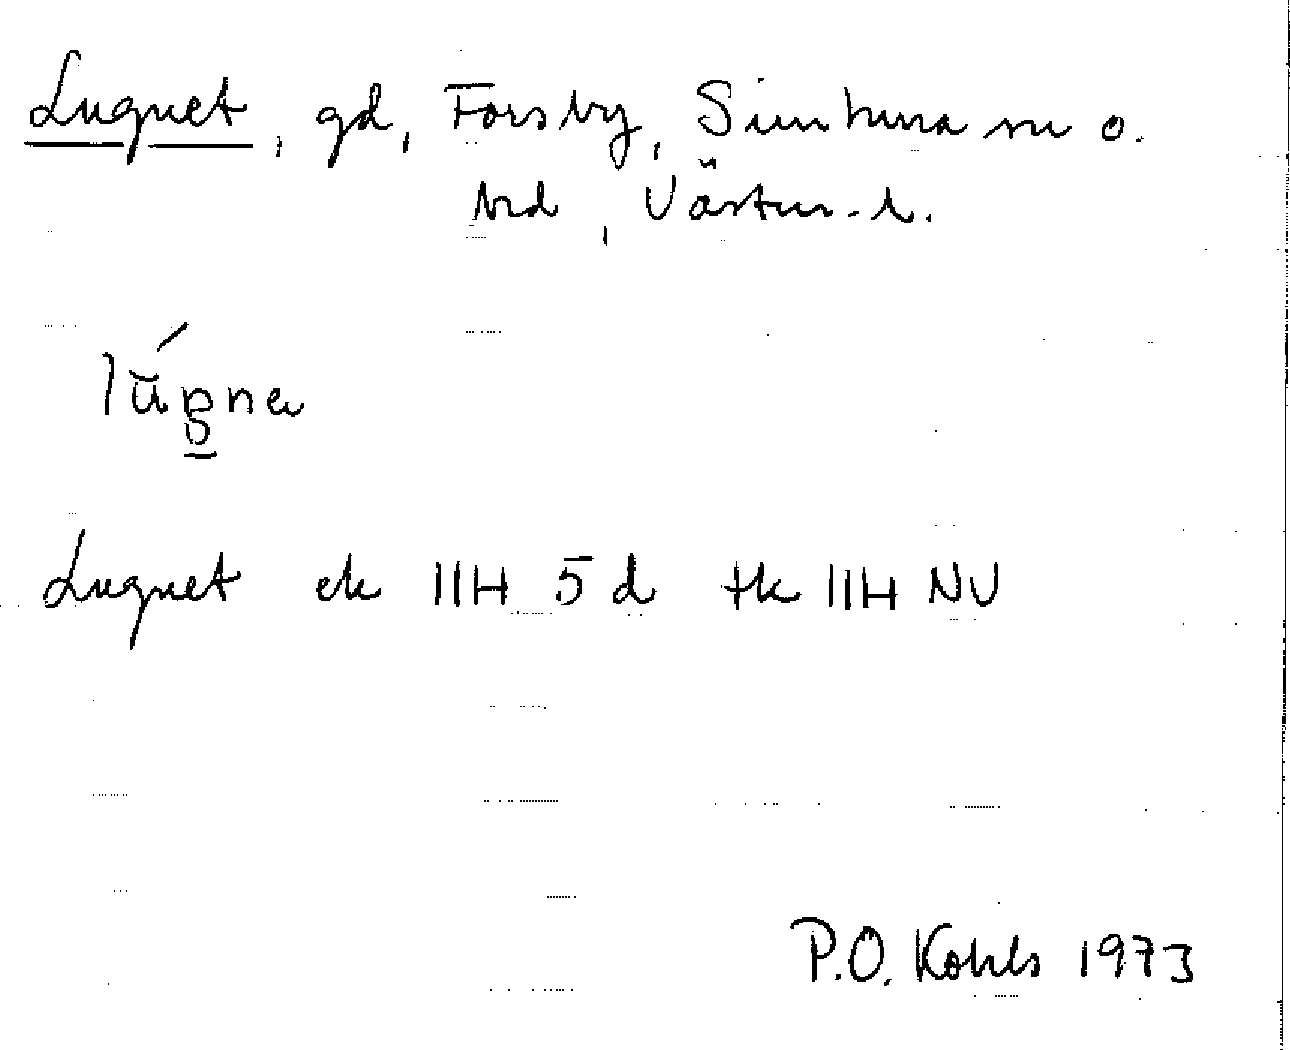 Lugnet, gd, Forsby, Simtuna sn o.
hd, Västm. l.
Lugnet ek 11H 5d tk 11H NV
P.O. Kohls 1973